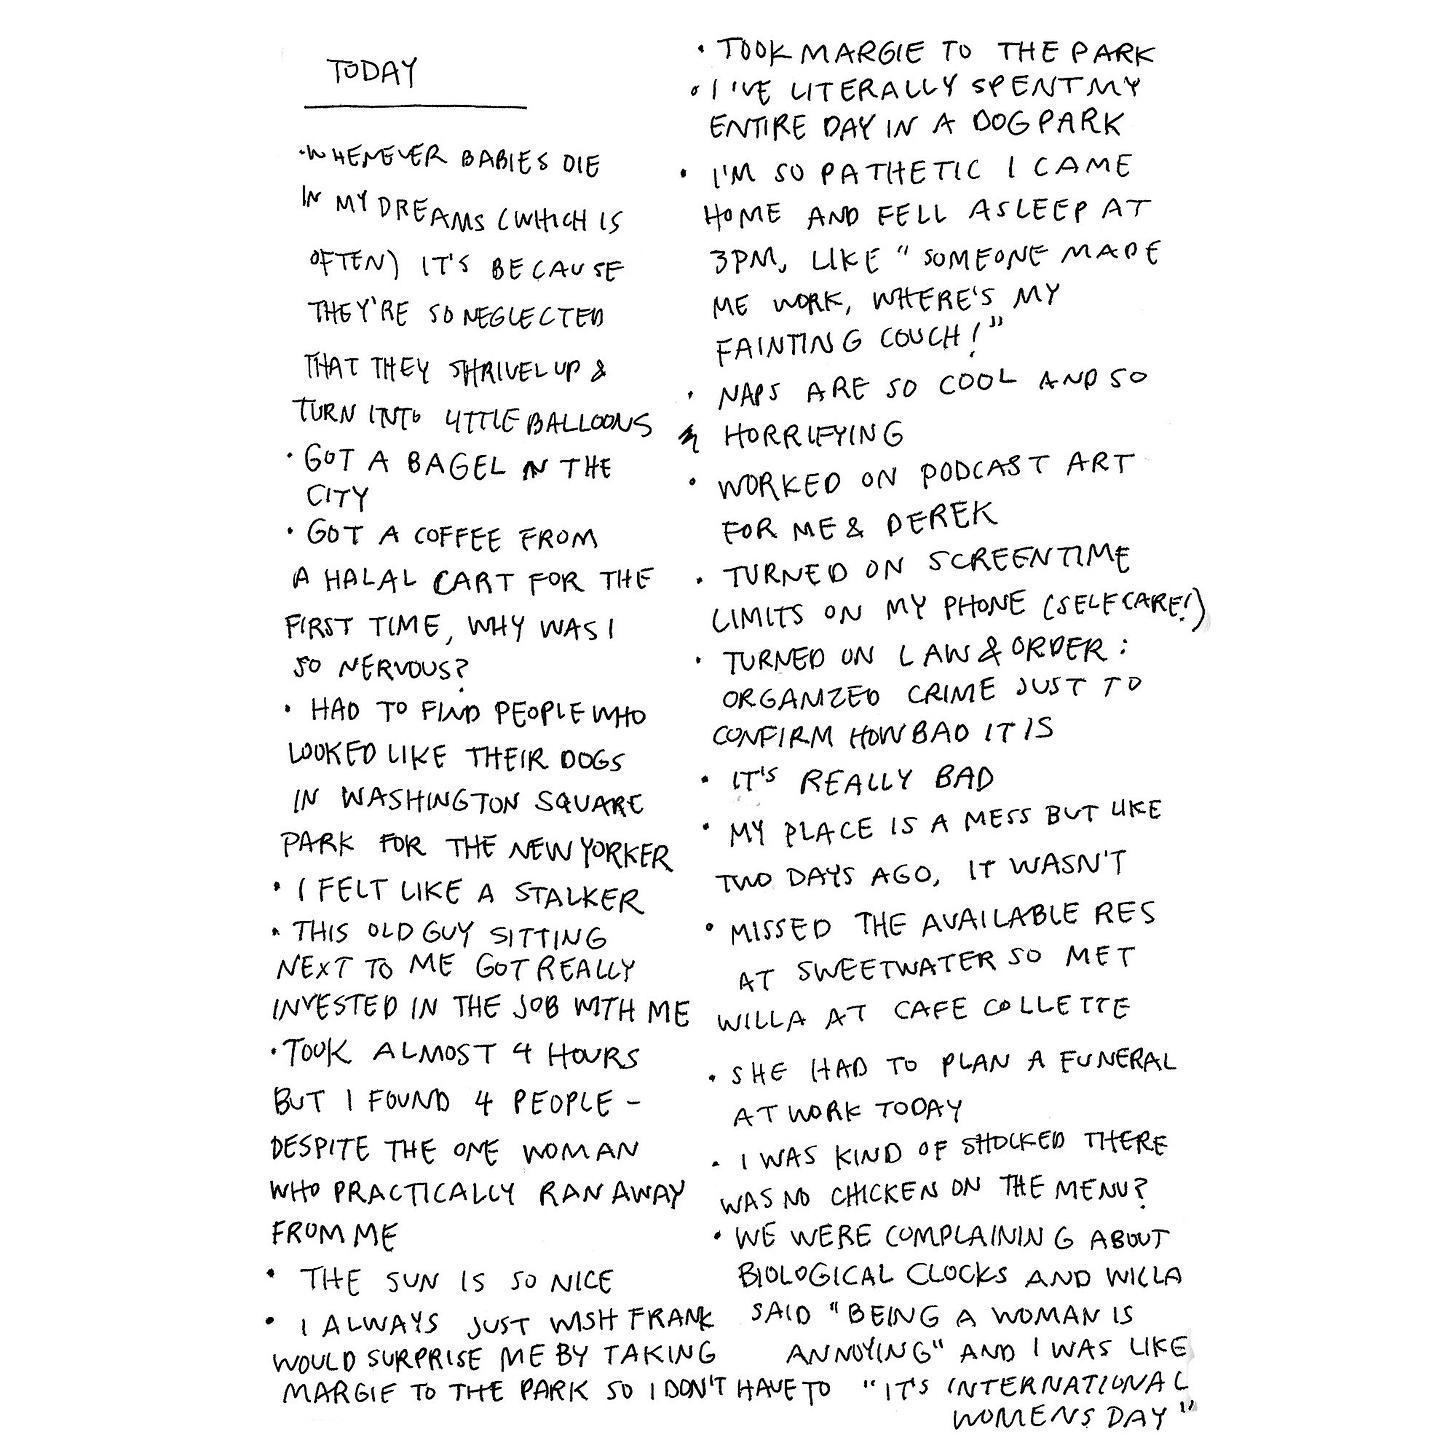 TODAY
·WHENEVER BABIES DIE
IN MY DREAMS (WHICH IS
OFTEN) IT'S BECAUSE
THEY'RE SO NEGLECTED
THAT THEY SHRIVEL UP &
TURN INTO LITTLE BALLOONS
· GOT A BAGEL IN THE
CITY
· GOT A COFFEE FROM
A HALAL CART FOR THE
FIRST TIME, WHY WAS I
SO NERVOUS?
· HAD TO FIND PEOPLE WHO
LOOKED LIKE THEIR DOGS
IN WASHINGTON SQUARE
PARK FOR THE NEW YORKER
· I FELT LIKE A STALKER
· THIS OLD GUY SITTING
NEXT TO ME GOT REALLY
INVESTED IN THE JOB WITH ME
· TOOK ALMOST 4 HOURS
BUT I FOUND 4 PEOPLE -
DESPITE THE ONE WOMAN
WHO PRACTICALLY RAN AWAY
FROM ME
· THE SUN IS SO NICE
· I ALWAYS JUST WISH FRANK
WOULD SURPRISE ME BY TAKING
MARGIE TO THE PARK SO I DON'T HAVE TO
· TOOK MARGIE TO THE PARK
· I'VE LITERALLY SPENT MY
ENTIRE DAY IN A DOG PARK
· I'M SO PATHETIC I CAME
HOME AND FELL ASLEEP AT
3PM, LIKE "SOMEONE MADE
ME WORK, WHERE'S MY
FAINTING COUCH!"
· NAPS ARE SO COOL AND SO
HORRIFYING
· WORKED ON PODCAST ART
FOR ME & DEREK
· TURNED ON SCREENTIME
LIMITS ON MY PHONE (SELFCARE!)
· TURNED ON LAW & ORDER:
ORGANIZED CRIME JUST TO
CONFIRM HOW BAD IT IS
· IT'S REALLY BAD
· MY PLACE IS A MESS BUT LIKE
TWO DAYS AGO, IT WASN'T
· MISSED THE AVAILABLE RES
AT SWEETWATER SO MET
WILLA AT CAFE COLLETTE
· SHE HAD TO PLAN A FUNERAL
AT WORK TODAY
· I WAS KIND OF SHOCKED THERE
WAS NO CHICKEN ON THE MENU?
· WE WERE COMPLAINING ABOUT
BIOLOGICAL CLOCKS AND WILLA
SAID "BEING A WOMAN IS
ANNOYING" AND I WAS LIKE
"IT'S INTERNATIONAL
WOMENS DAY"